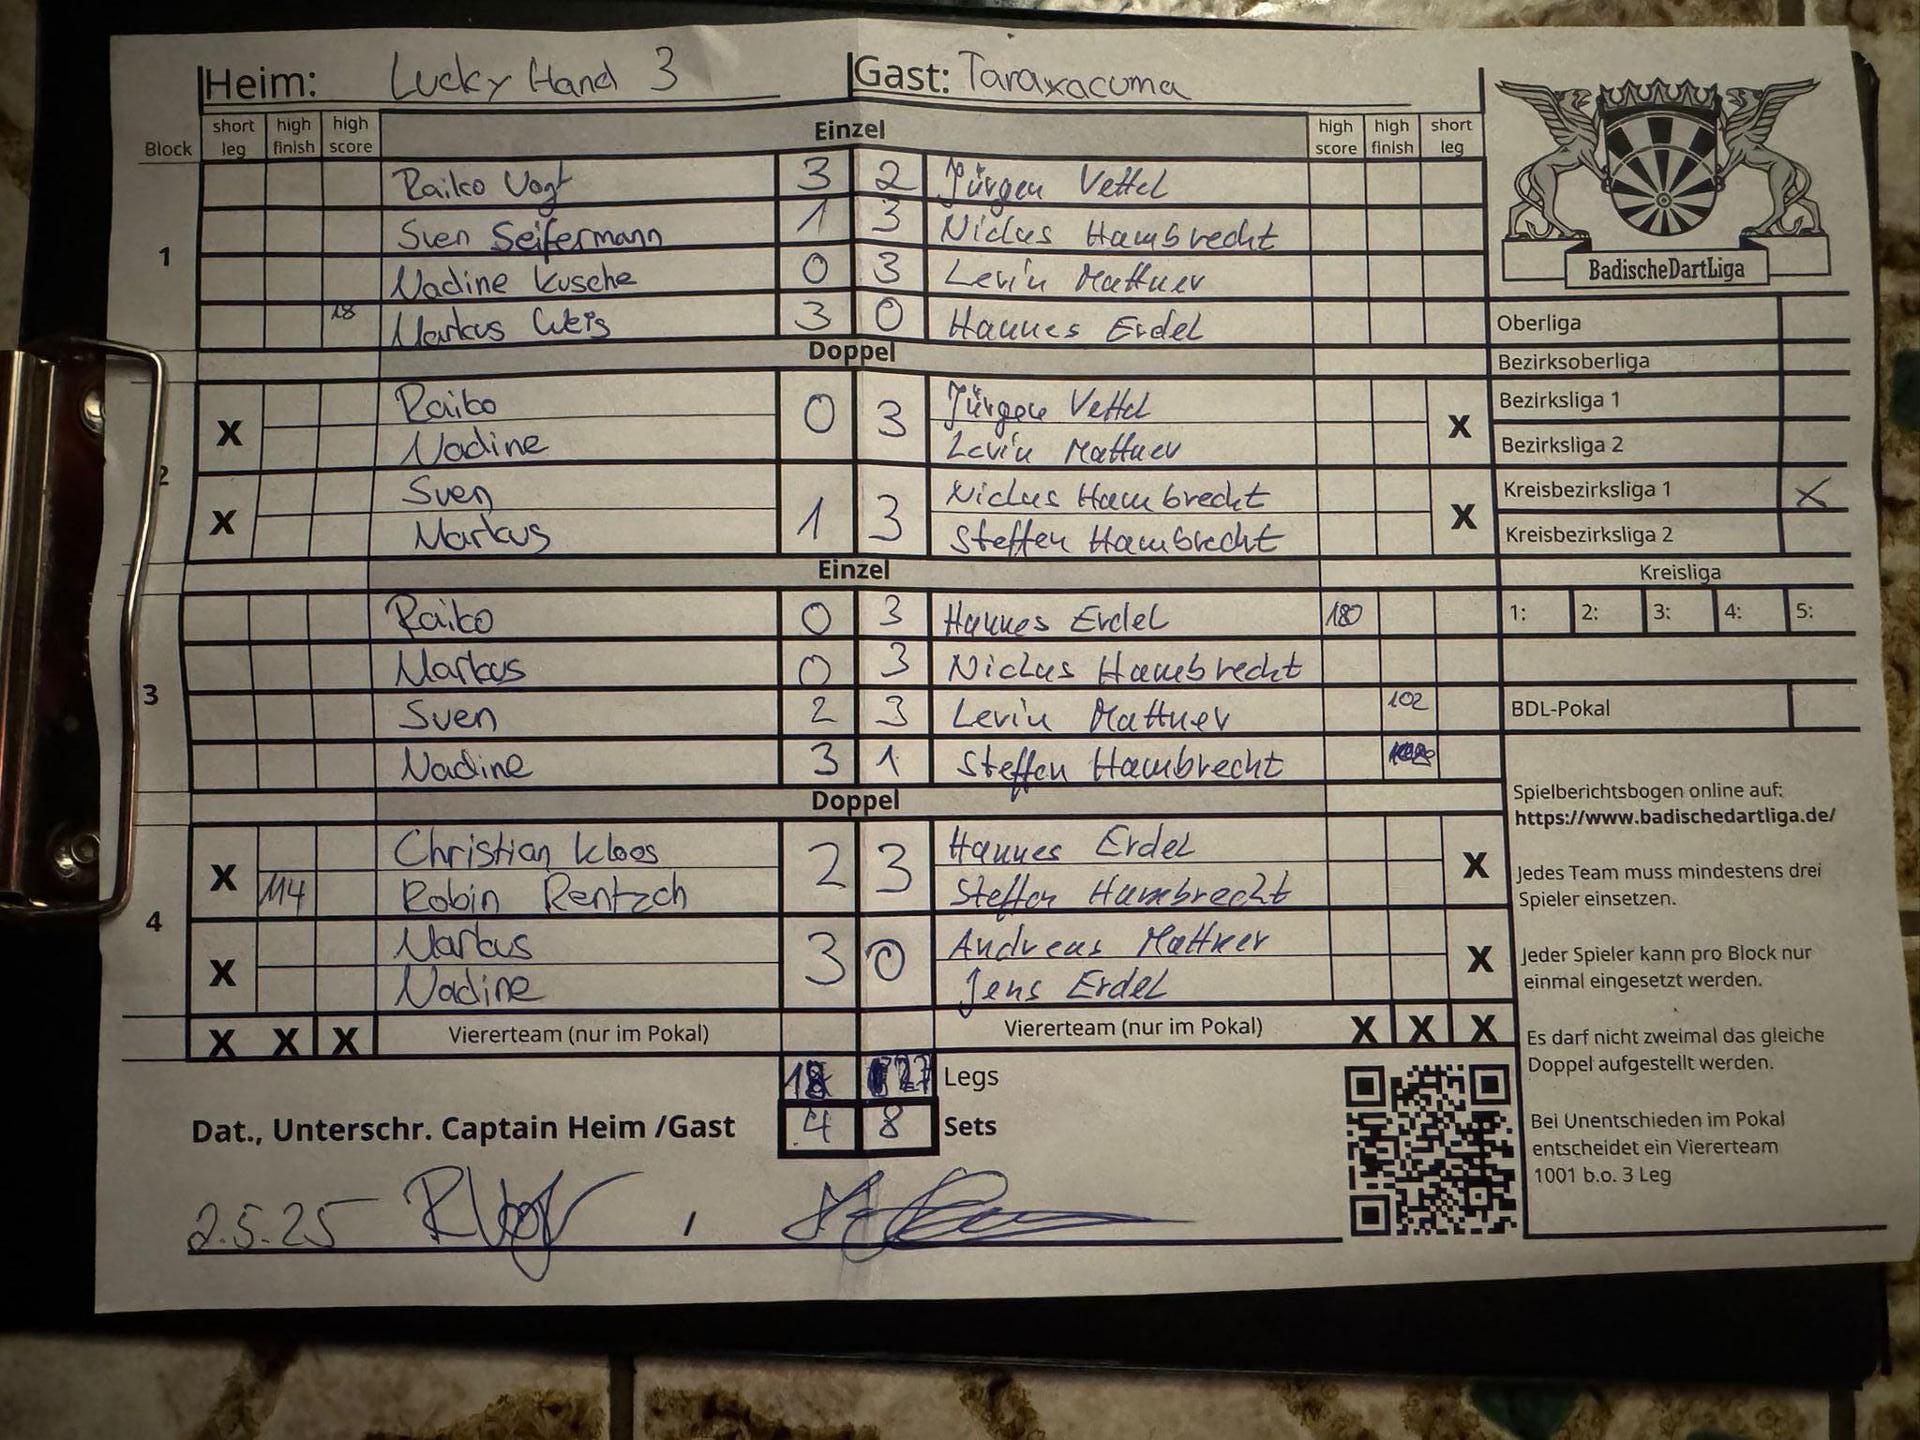 Heim: Lucky Hand 3 Gast: Taraxacuma
Block short leg high finish high score Einzel high score high finish short leg
1
Raiko Vogt 3 2 Jürgen Vettel
Sven Seifermann 1 3 Niclas Hambrecht
Nadine Kusche 0 3 Levin Mattner
18 Markus Weis 3 0 Hannes Erdel
Doppel
2
X Raiko 0 3 Jürgen Vettel X
Nadine Levin Mattner
X Sven 1 3 Niclas Hambrecht X
Markus Steffen Hambrecht
Einzel
3
Raiko 0 3 Hannes Erdel 180
Markus 0 3 Niclas Hambrecht
Sven 2 3 Levin Mattner 102
Nadine 3 1 Steffen Hambrecht
Doppel
4
X Christian Kloos 2 3 Hannes Erdel X
114 Robin Rentzch Steffen Hambrecht
X Markus 3 0 Andreas Mattner X
Nadine Jens Erdel
X X X Viererteam (nur im Pokal) Viererteam (nur im Pokal) X X X
27 Legs
4 8 Sets
Dat., Unterschr. Captain Heim /Gast
2.5.25 RVogt ,
BadischeDartLiga
Oberliga
Bezirksoberliga
Bezirksliga 1
Bezirksliga 2
Kreisbezirksliga 1 X
Kreisbezirksliga 2
Kreisliga
1: 2: 3: 4: 5:
BDL-Pokal
Spielberichtsbogen online auf:
https://www.badischedartliga.de/
Jedes Team muss mindestens drei
Spieler einsetzen.
Jeder Spieler kann pro Block nur
einmal eingesetzt werden.
Es darf nicht zweimal das gleiche
Doppel aufgestellt werden.
Bei Unentschieden im Pokal
entscheidet ein Viererteam
1001 b.o. 3 Leg